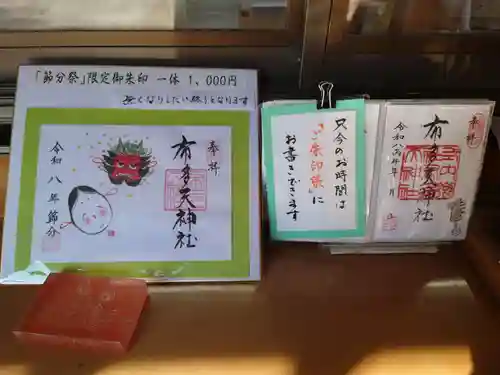 「節分祭」限定御朱印 一体 1,000円
無くなりしだい終了となります
奉拝
布多天神社
令和八年節分
只今のお時間は
"ご朱印帳"に
お書きできます
奉拝
布多天神社
令和八年 月